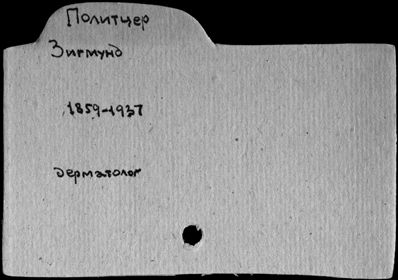 Политцер
Зигмунд
1859-1937
дерматолог